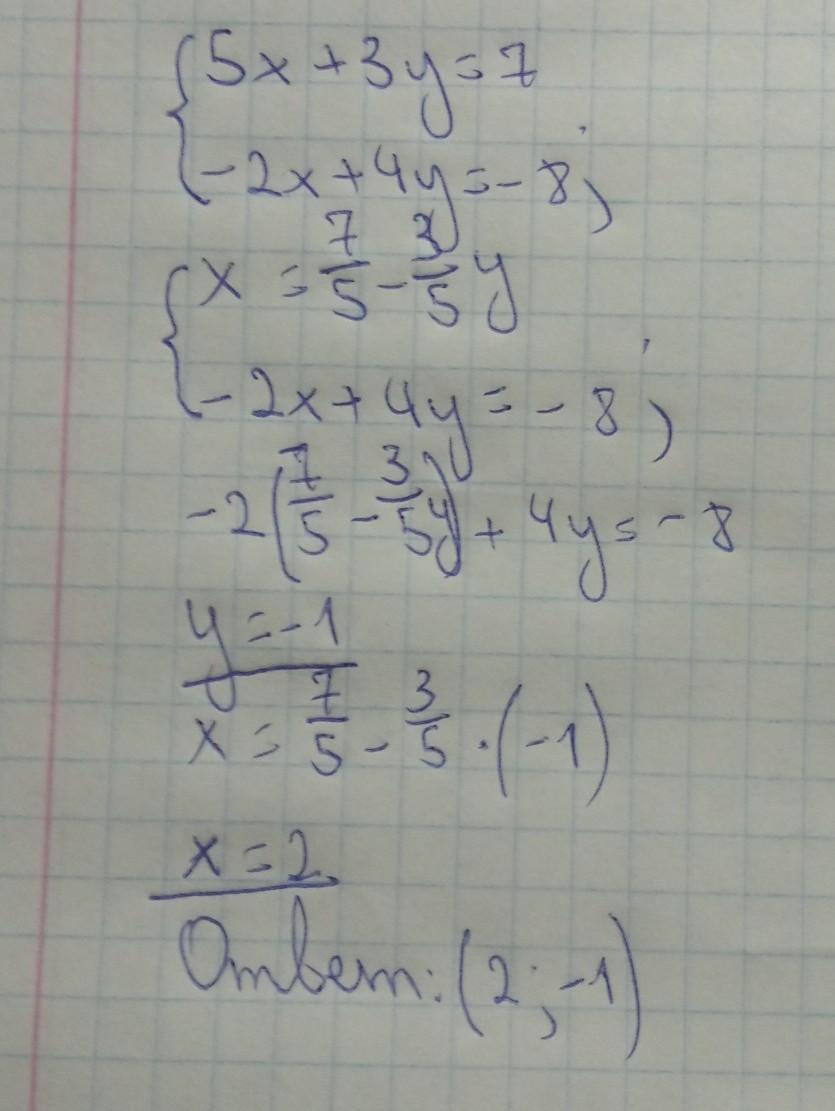 5x + 3y = 7
-2x + 4y = -8;
x = 7/5 - 3/5 y
-2x + 4y = -8;
-2(7/5 - 3/5 y) + 4y = -8
y = -1
x = 7/5 - 3/5 · (-1)
x = 2
Ответ: (2; -1)